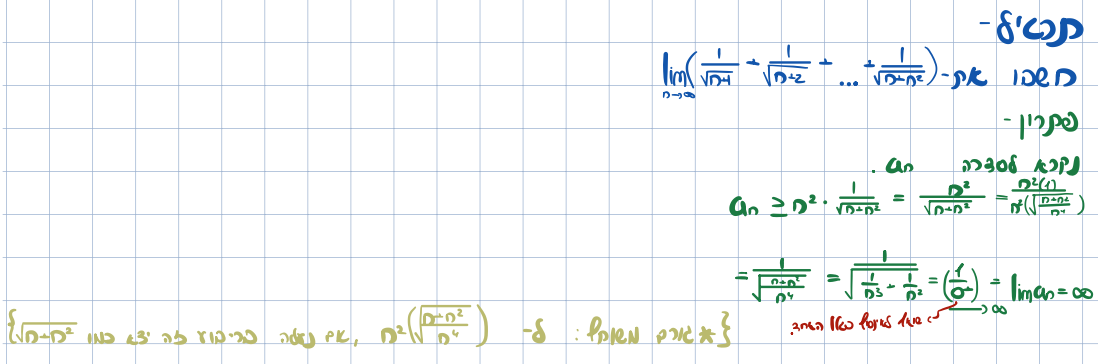 תרגיל-
חשבו את- lim n→∞ (1/√(n+1) + 1/√(n+2) + ... + 1/√(n+n²))
פתרון-
נקרא לסדרה an.
an ≥ n² · 1/√(n+n²) = n²/√(n+n²) = n²(1)/n²(√((n+n²)/n⁴))
= 1/√((n+n²)/n⁴) = 1/√(1/n³ + 1/n²) = (1/0⁺) →∞ = lim an = ∞
{* גורם משותף: ל- n²(√((n+n²)/n⁴)), אם נעלה בריבוע זה יצא כמו √(n+n²)}